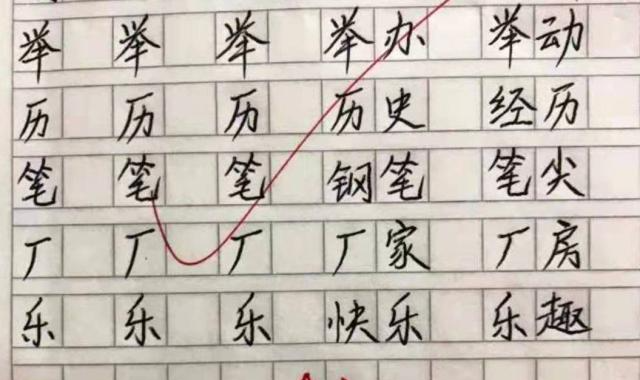 举 举 举 举办 举动
历 历 历 历史 经历
笔 笔 笔 钢笔 笔尖
厂 厂 厂 厂家 厂房
乐 乐 乐 快乐 乐趣